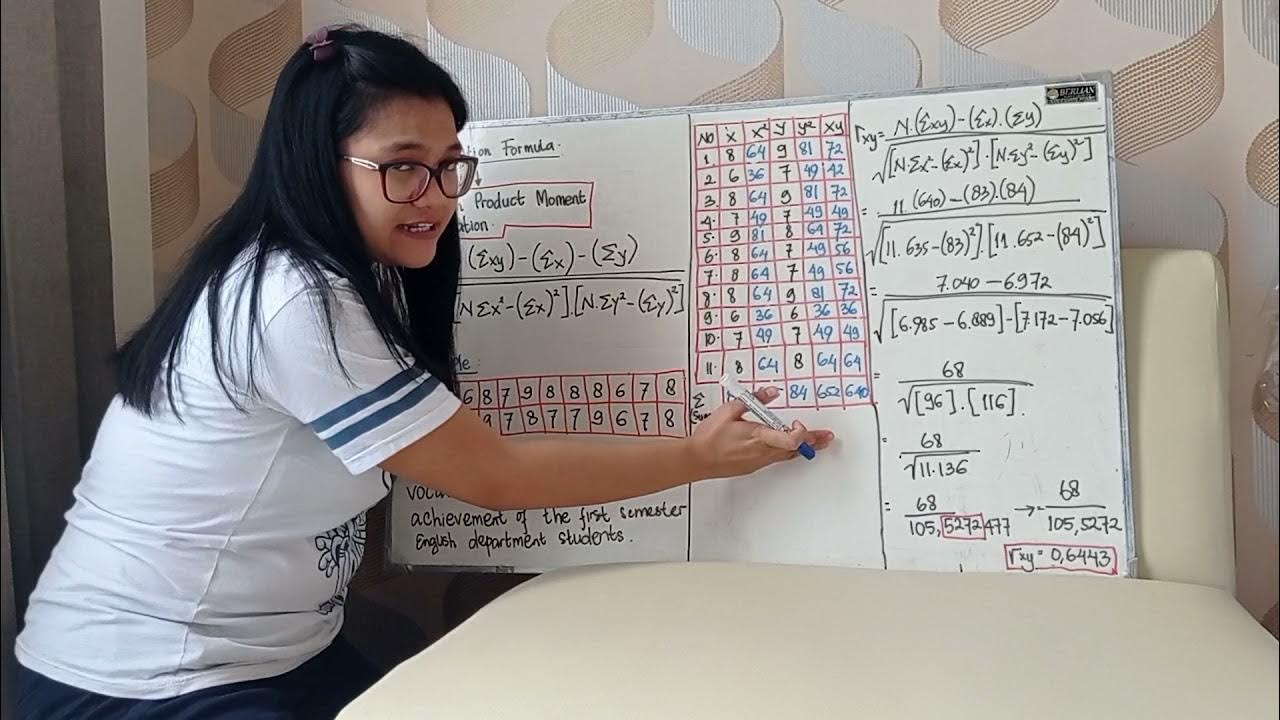 tion Formula.
Product Moment
ation.
(Σxy)-(Σx)-(Σy)
[NΣx²-(Σx)²].[N.Σy²-(Σy)²]
ple:
6 8 7 9 8 8 8 6 7 8
9 7 8 7 7 9 6 7 8
achievement of the first semester
English department students.
NO X X² Y Y² XY
1. 8 64 9 81 72
2 6 36 7 49 42
3. 8 64 9 81 72
4. 7 49 7 49 49
5. 9 81 8 64 72
6. 8 64 7 49 56
7. 8 64 7 49 56
8. 8 64 9 81 72
9. 6 36 6 36 36
10. 7 49 7 49 49
11. 8 64 8 64 64
Σ 84 652 640
BERLIAN
rxy = N.(Σxy)-(Σx).(Σy)
√[N.Σx²-(Σx)²].[N.Σy²-(Σy)²]
= 11 (640)-(83).(84)
√[11.635-(83)²].[11.652-(84)²]
= 7.040-6.972
√[6.985-6.889]-[7.172-7.056]
= 68
√[96].[116].
= 68
√11.136
= 68 → 68
105,5272477 105,5272
rxy = 0,6443